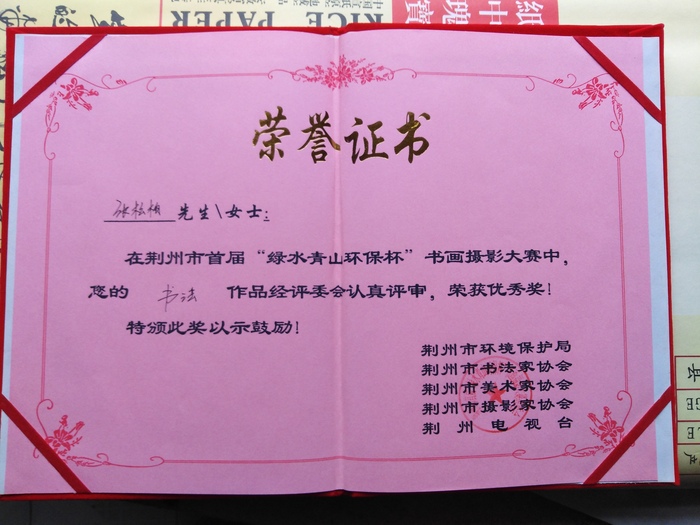 RICE PAPER
荣誉证书
张松柏 先生\女士:
在荆州市首届“绿水青山环保杯”书画摄影大赛中,
您的 书法 作品经评委会认真评审, 荣获优秀奖!
特颁此奖以示鼓励!
荆州市环境保护局
荆州市书法家协会
荆州市美术家协会
荆州市摄影家协会
荆州电视台
县